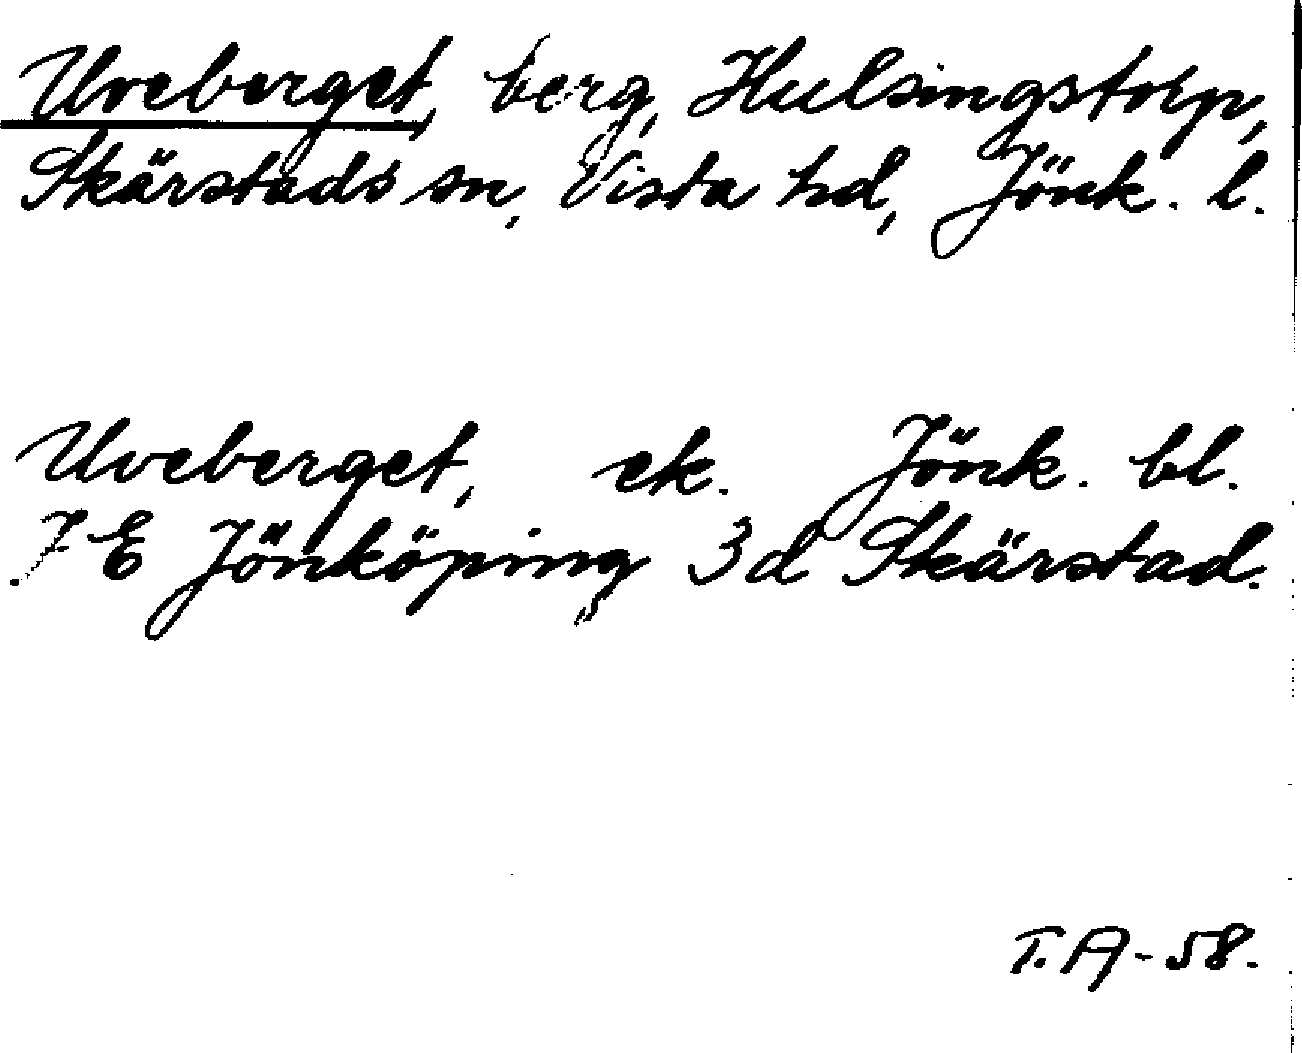 Uveberget, berg, Hulsingstorp,
Skärstads sn, Vista hd, Jönk. l.
Uveberget, ek. Jönk. bl.
7 E Jönköping 3d Skärstad.
T.A-58.